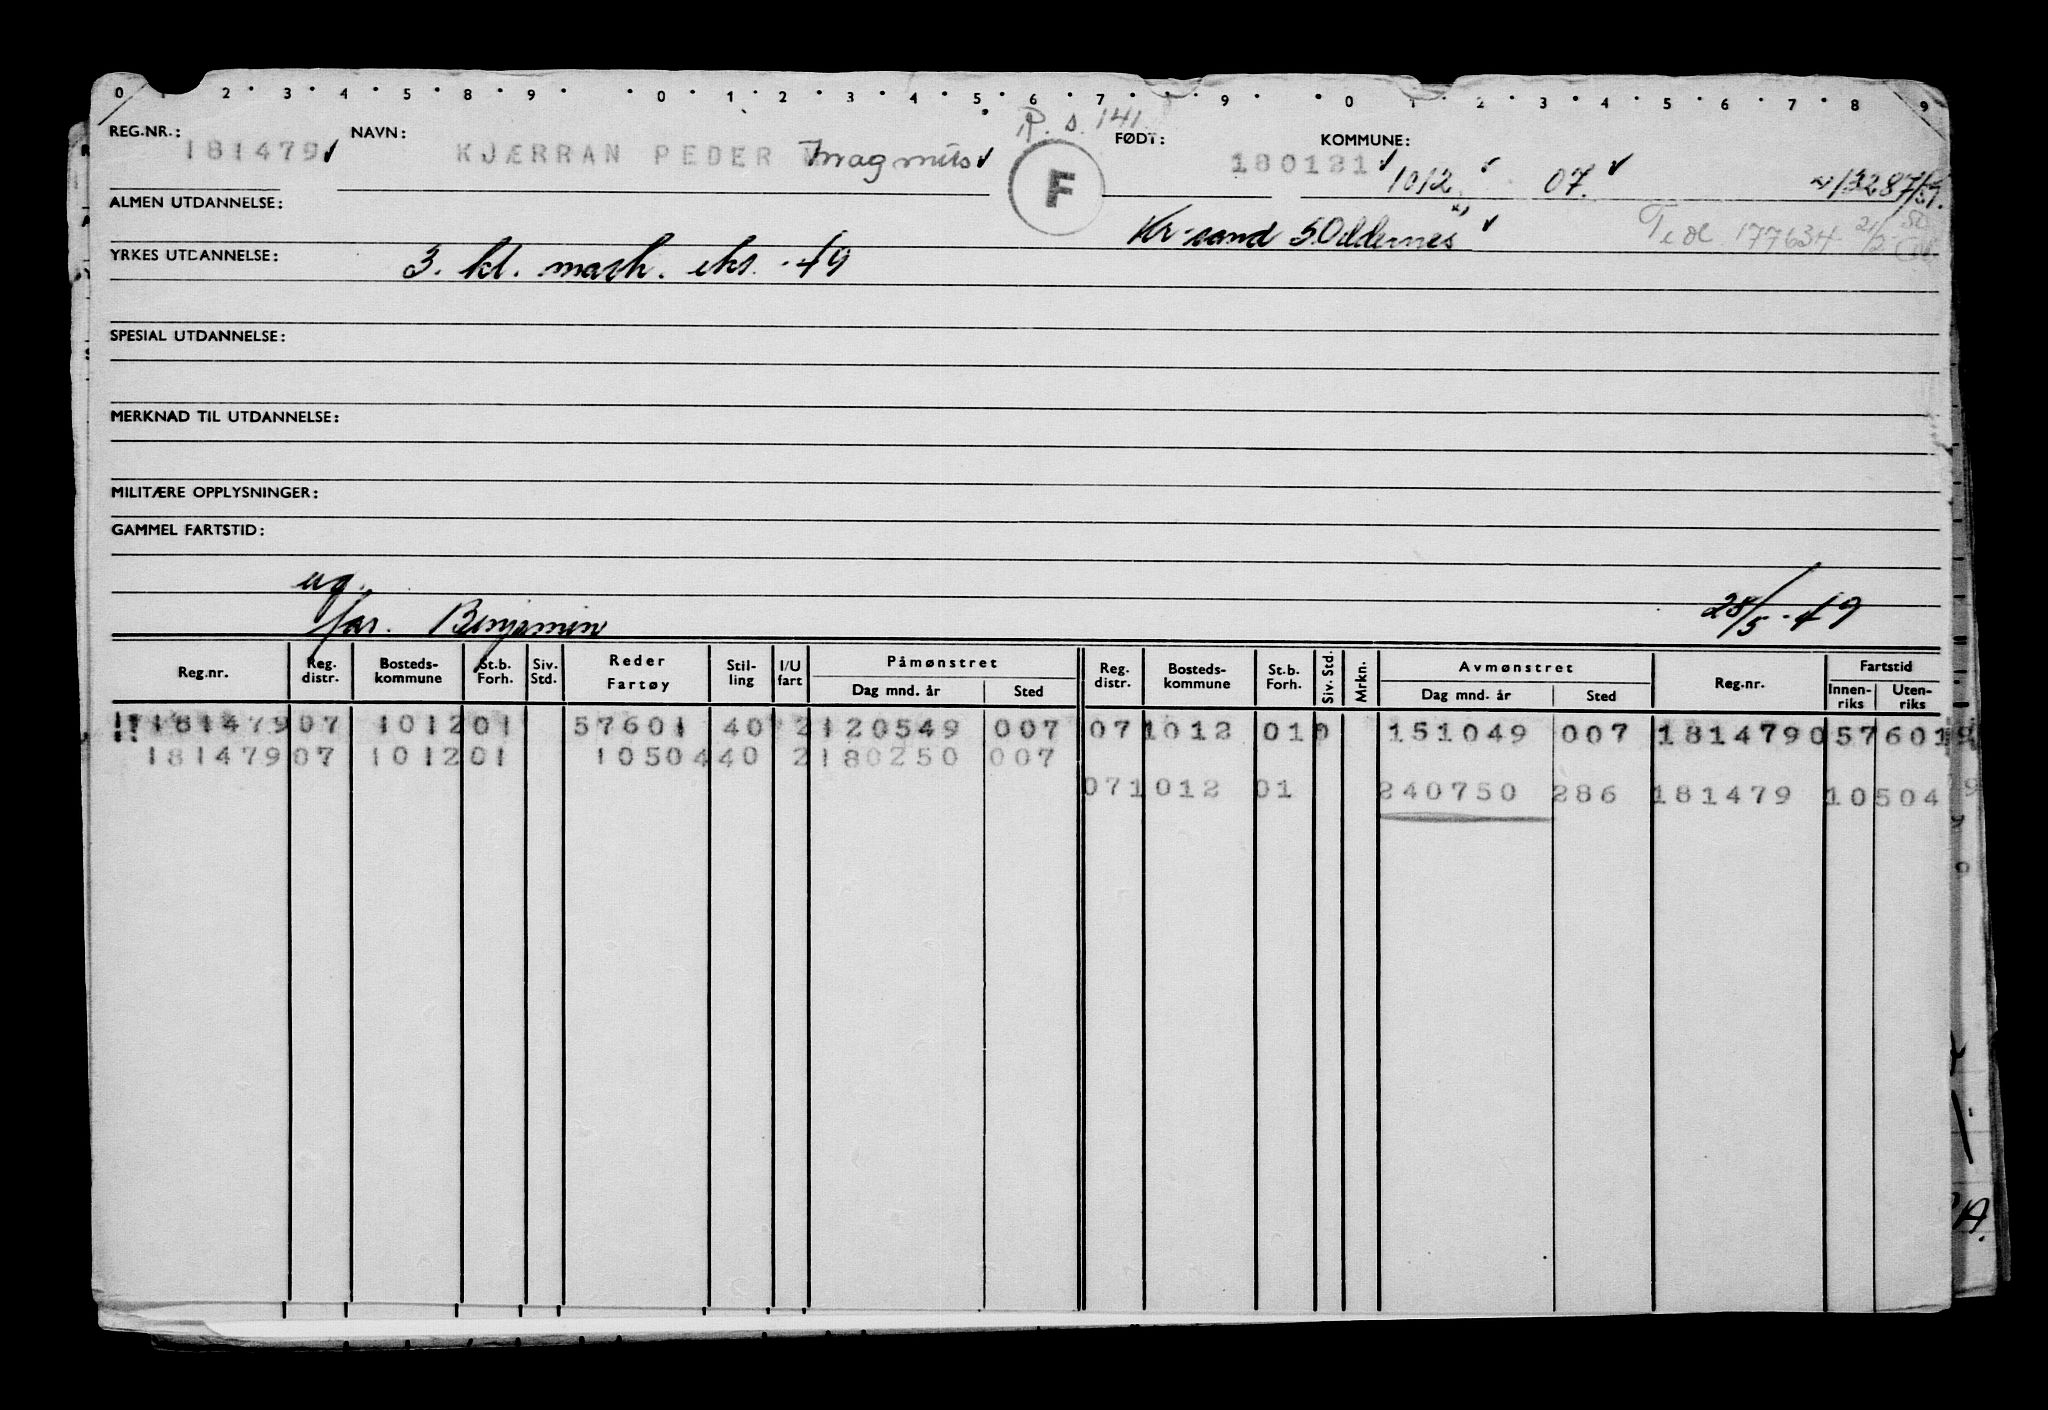 0 1 2 3 4 5 8 9 0 1 2 3 4 5 6 7 9 0 1 2 3 4 5 6 7 8 9
R. s. 141
REG.NR.: 181479 NAVN: KJÆRRAN PEDER Magnus F FØDT: 180121 KOMMUNE: 1012 07. 13287/51.
ALMEN UTDANNELSE: Kr-sand S. Oddernes 177634
YRKES UTDANNELSE: 3. kl. mask. eks. -49
SPESIAL UTDANNELSE:
MERKNAD TIL UTDANNELSE:
MILITÆRE OPPLYSNINGER:
GAMMEL FARTSTID:
ug.
far. Benjamin 28/5-49
Reg.nr. Reg. distr. Bosteds-kommune St.b. Forh. Siv. Std. Reder Fartøy Stil-ling I/U fart Påmønstret Dag mnd. år Sted Reg. distr. Bosteds-kommune St.b. Forh. Siv. Std. Mrkn. Avmønstret Dag mnd. år Sted Reg.nr. Fartstid Innen-riks Uten-riks
181479 07 1012 01 57601 40 2 120549 007 07 1012 01 0 151049 007 181479 0 57601
181479 07 1012 01 10504 40 2 180250 007
07 1012 01 240750 286 181479 10504